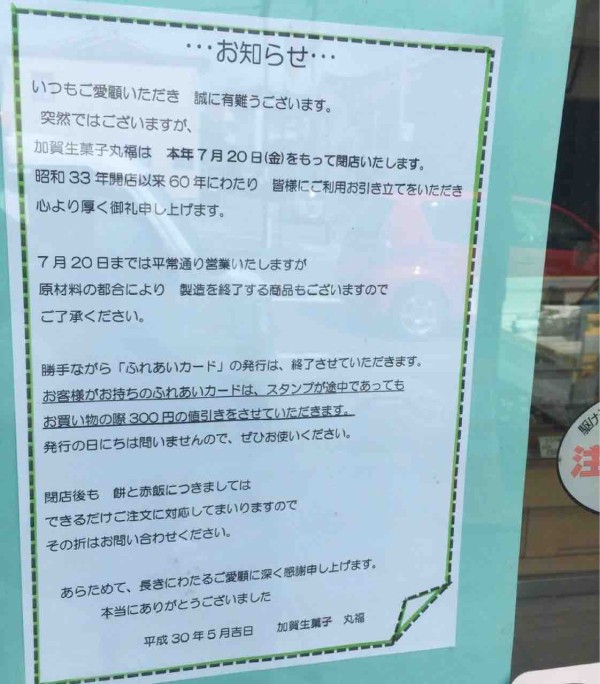 …お知らせ…
いつもご愛顧いただき　誠に有難うございます。
突然ではございますが、
加賀生菓子丸福は　本年７月20日(金)をもって閉店いたします。
昭和３３年開店以来６０年にわたり　皆様にご利用お引き立てをいただき
心より厚く御礼申し上げます。
７月２０日までは平常通り営業いたしますが
原材料の都合により　製造を終了する商品もございますので
ご了承ください。
勝手ながら「ふれあいカード」の発行は、終了させていただきます。
お客様がお持ちのふれあいカードは、スタンプが途中であっても
お買い物の際３００円の値引きをさせていただきます。
発行の日にちは問いませんので、ぜひお使いください。
閉店後も　餅と赤飯につきましては
できるだけご注文に対応してまいりますので
その折はお問い合わせください。
あらためて、長きにわたるご愛顧に深く感謝申し上げます。
本当にありがとうございました
平成３０年５月吉日　　加賀生菓子　丸福
駆け
注